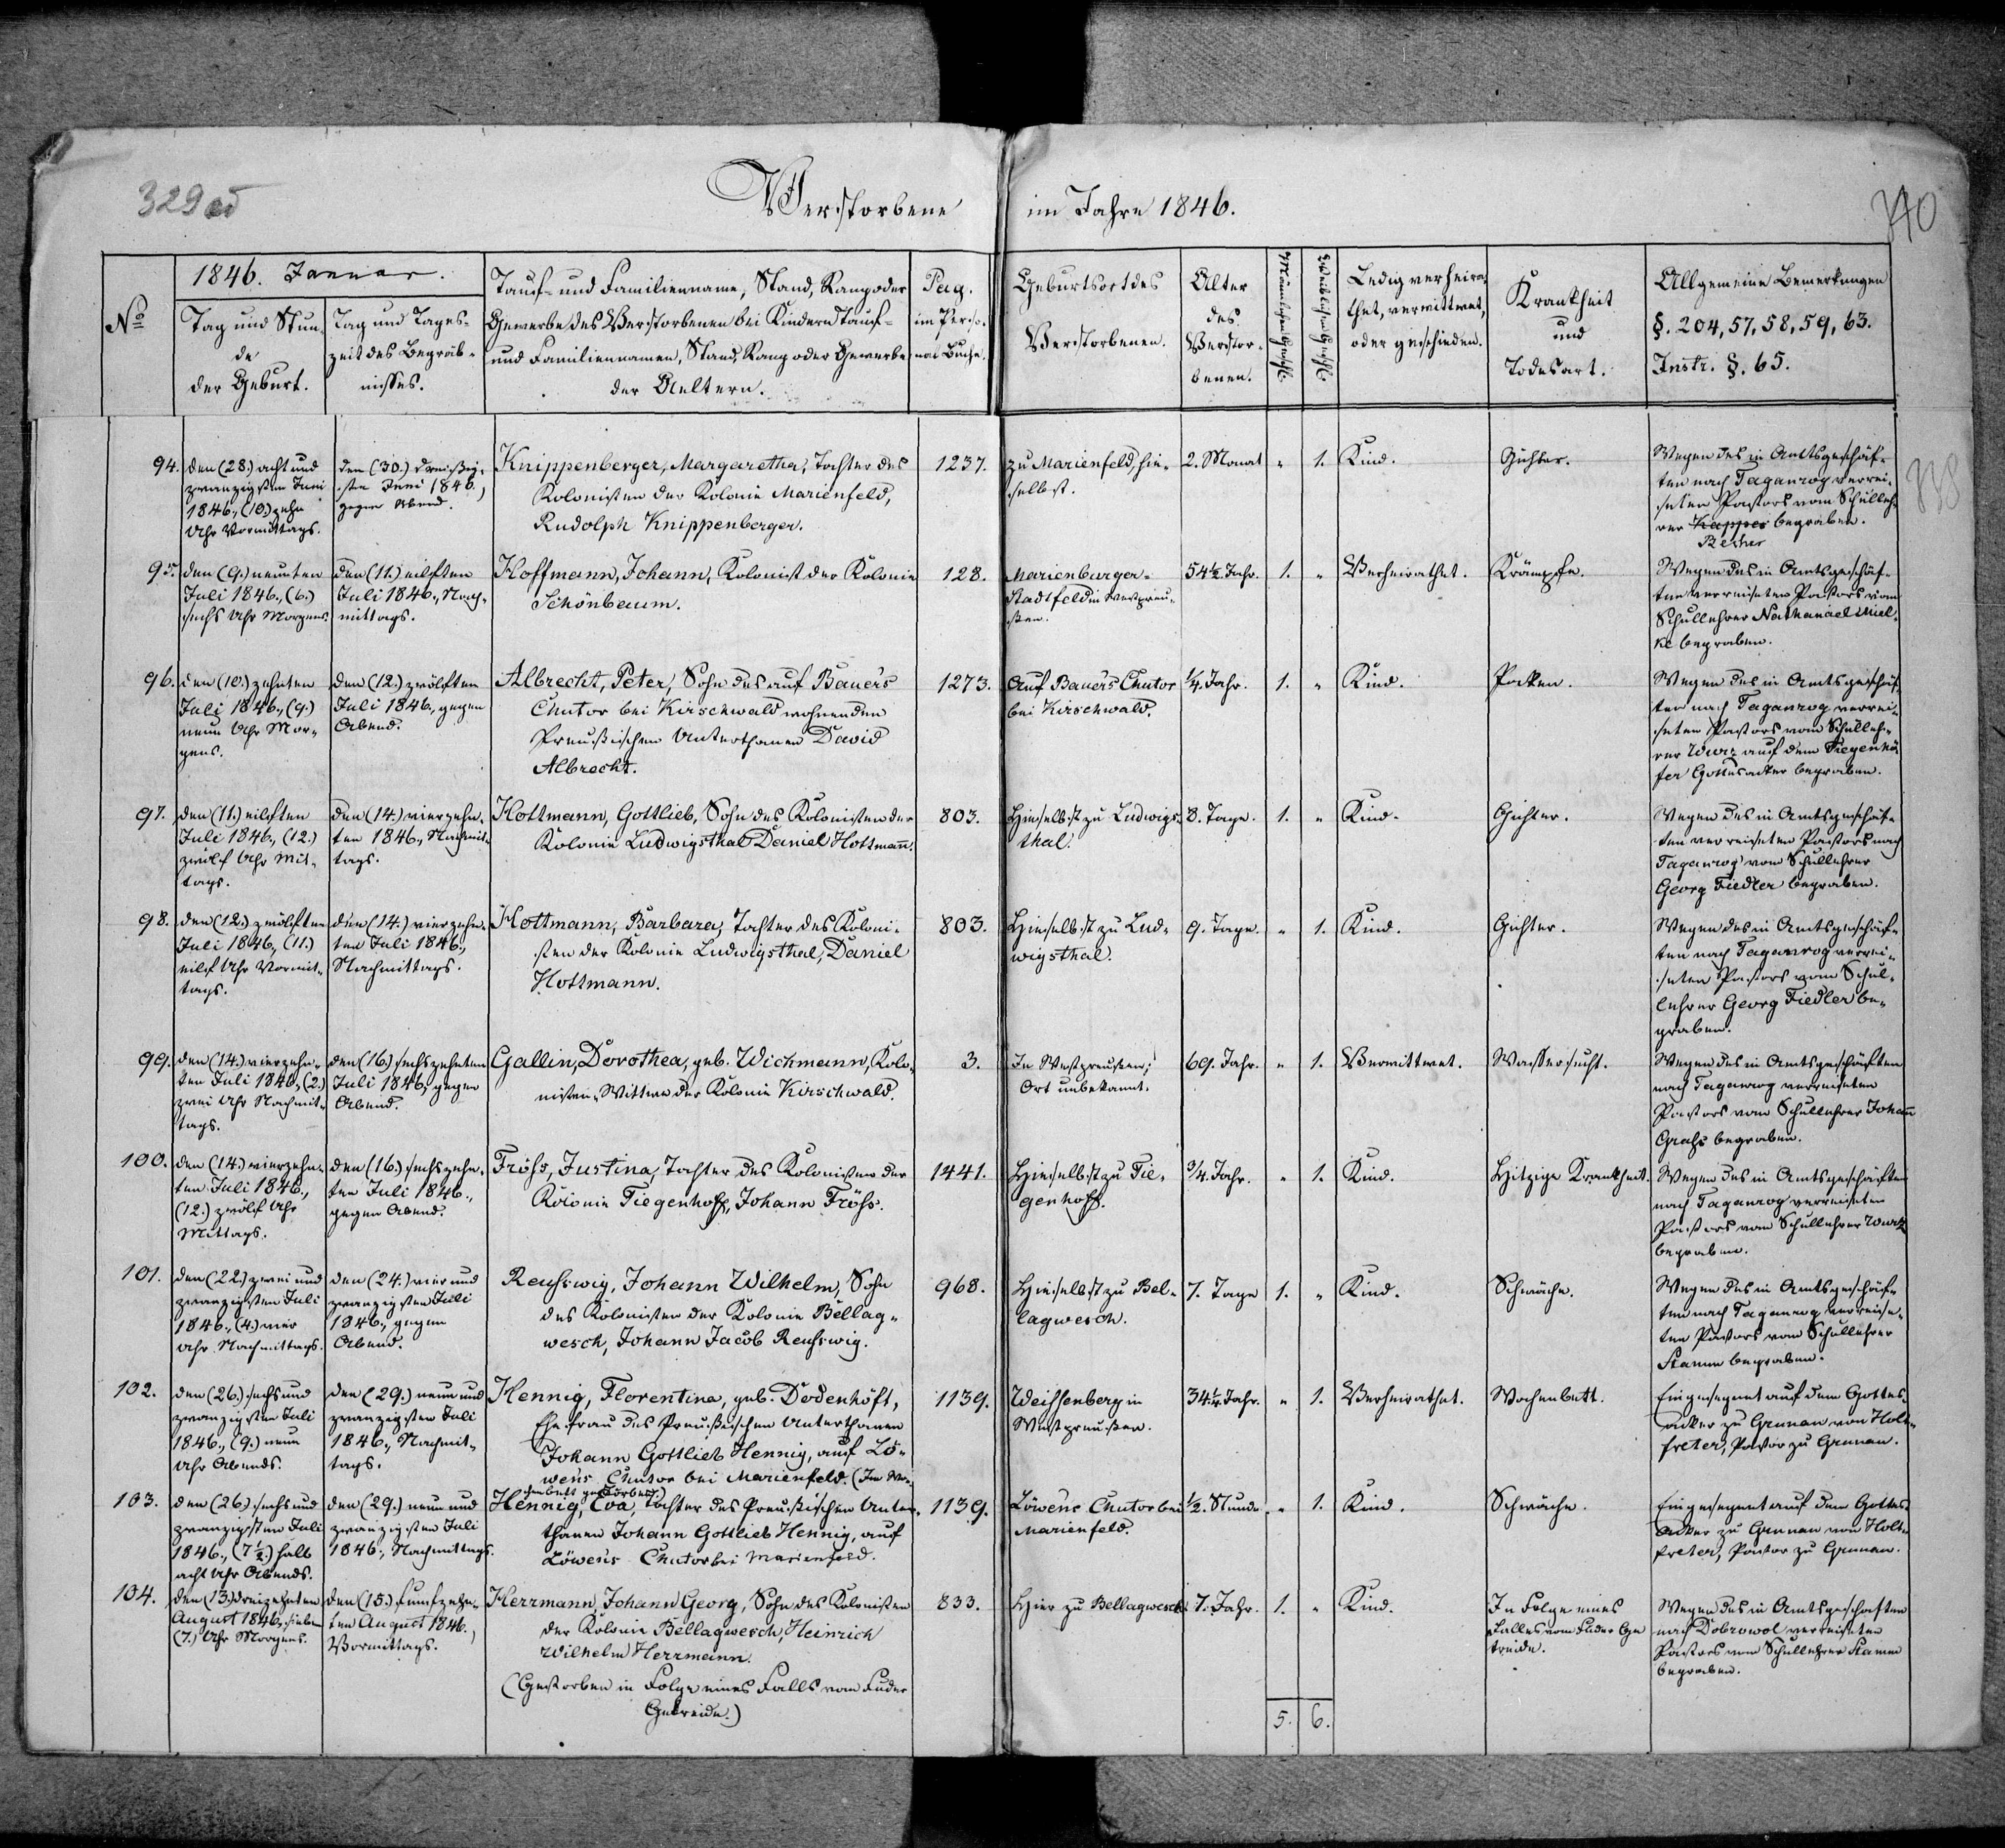 Verstorbene im Jahre 1846.
329
340
338
No
1846. Januar.
Tag und Stun-
de
der Geburt.
Tag und Tages-
zeit des Begräb-
nisses.
Tauf- und Familienname, Stand, Rang oder
Gewerbe des Verstorbenen bei Kindern Tauf-
und Familiennamen, Stand, Rang oder Gewerbe
der Aeltern.
Pag.
im Perso-
nal Buche.
Geburtsort des
Verstorbenen.
Alter
des
Verstor-
benen.
Männlichen Geschl.
Weiblichen Geschl.
Ledig verheira-
thet, verwittwet,
oder geschieden.
Krankheit
und
Todesart.
Allgemeine Bemerkungen
§. 204, 57, 58, 59, 63.
Instr. §. 65.
94.
den (28.) acht und
zwanzigsten Juni
1846., (10.) zehn
Uhr Vormittags.
den (30.) dreißig-
sten Juni 1846.,
gegen Abend.
Knippenberger, Margaretha, Tochter des
Kolonisten der Kolonie Marienfeld,
Rudolph Knippenberger.
1237.
zu Marienfeld, hie-
selbst.
2. Monat
"
1.
Kind.
Gichter.
Wegen des in Amtsgeschäf-
ten nach Taganrog verrei-
seten Pastors vom Schulleh-
rer Kappes begraben.
Becher
95.
den (9.) neunten
Juli 1846., (6.)
sechs Uhr Morgens.
den (11.) eilften
Juli 1846., Nach-
mittags.
Hoffmann, Johann, Kolonist der Kolonie
Schönbaum.
128.
Marienburger-
Stadtfeld in Westpreu-
ßen.
54½. Jahr.
1.
"
Verheirathet.
Krämpfe.
Wegen des in Amtsgeschäf-
ten verreiseten Pastors vom
Schullehrer Nathanael Miel-
ke begraben.
96.
den (10.) zehnten
Juli 1846., (9.)
neun Uhr Mor-
gens.
den (12.) zwölften
Juli 1846., gegen
Abend.
Albrecht, Peter, Sohn des auf Bauers
Chutor bei Kirschwald wohnenden
Preußischen Unterthanen David
Albrecht.
1273.
Auf Bauers Chutor
bei Kirschwald.
¼. Jahr.
1.
"
Kind.
Pocken.
Wegen des in Amtsgeschäf-
ten nach Taganrog verrei-
seten Pastors vom Schulleh-
rer Wurz auf dem Tiegenhö-
fer Gottesacker begraben.
97.
den (11.) eilften
Juli 1846., (12.)
zwölf Uhr Mit-
tags.
den (14.) vierzehn-
ten 1846., Nachmit-
tags.
Hottmann, Gottlieb, Sohn des Kolonisten der
Kolonie Ludwigsthal Daniel Hottmann.
803.
Hieselbst zu Ludwigs-
thal.
8. Tage.
1.
"
Kind.
Gichter.
Wegen des in Amtsgeschäf-
ten verreiseten Pastors nach
Taganrog vom Schullehrer
Georg Fiedler begraben.
98.
den (12.) zwölften
Juli 1846., (11.)
eilf Uhr Vormit-
tags.
den (14.) vierzehn-
ten Juli 1846.,
Nachmittags.
Hottmann, Barbara, Tochter des Koloni-
sten der Kolonie Ludwigsthal, Daniel
Hottmann.
803.
Hieselbst zu Lud-
wigsthal.
9. Tage.
"
1.
Kind.
Gichter.
Wegen des in Amtsgeschäf-
ten nach Taganrog verrei-
seten Pastors vom Schul-
lehrer Georg Fiedler be-
graben.
99.
den (14.) vierzehn-
ten Juli 1846., (2.)
zwei Uhr Nachmit-
tags.
den (16.) sechszehnten
Juli 1846., gegen
Abend.
Gallin, Dorothea, geb. Wichmann, Kolo-
nisten-Wittwe der Kolonie Kirschwald.
3.
In Westpreußen,
Ort unbekannt.
69. Jahr.
"
1.
Verwittwet.
Wassersucht.
Wegen des in Amtsgeschäften
nach Taganrog verreiseten
Pastors vom Schullehrer Johann
Grahs begraben.
100.
den (14.) vierzehn-
ten Juli 1846.,
(12.) zwölf Uhr
Mittags.
den (16.) sechszehn-
ten Juli 1846.,
gegen Abend.
Fröhs, Justina, Tochter des Kolonisten der
Kolonie Tiegenhoff, Johann Fröhs.
1441.
Hieselbst zu Tie-
genhoff.
¾. Jahr.
"
1.
Kind.
Hitzige Krankheit.
Wegen des in Amtsgeschäften
nach Taganrog verreiseten
Pastors vom Schullehrer Wurz
begraben.
101.
den (22.) zwei und
zwanzigsten Juli
1846., (4.) vier
Uhr Nachmittags.
den (24.) vier und
zwanzigsten Juli
1846., gegen
Abend.
Reuhswig, Johann Wilhelm, Sohn
des Kolonisten der Kolonie Bellag-
wesch, Johann Jacob Reuhswig.
968.
Hieselbst zu Bel-
lagwesch.
7. Tage
1.
"
Kind.
Schwäche.
Wegen des in Amtsgeschäf-
ten nach Taganrog verreise-
ten Pastors vom Schullehrer
Stamm begraben.
102.
den (26.) sechs und
zwanzigsten Juli
1846., (9.) neun
Uhr Abends.
den (29.) neun und
zwanzigsten Juli
1846., Nachmit-
tags.
Hennig, Florentina, geb. Dodenhöft,
Ehefrau des Preußischen Unterthanen
Johann Gottlieb Hennig, auf Lö-
wens Chutor bei Marienfeld. (Im Wo-
chenbett gestorben.)
1139.
Weihsenberg in
Westpreußen.
34¼. Jahr.
"
1.
Verheirathet.
Wochenbett.
Eingesegnet auf dem Gottes-
acker zu Grunau von Holt-
freter, Pastor zu Grunau.
103.
den (26.) sechs und
zwanzigsten Juli
1846., (7½.) halb
acht Uhr Abends.
den (29.) neun und
zwanzigsten Juli
1846., Nachmittags.
Hennig, Eva, Tochter des Preußischen Unter-
thanen Johann Gottlieb Hennig, auf
Löwens Chutor bei Marienfeld.
1139.
Löwens Chutor bei
Marienfeld.
½. Stunde.
"
1.
Kind.
Schwäche.
Eingesegnet auf dem Gottes-
acker zu Grunau von Holt-
freter, Pastor zu Grunau.
104.
den (13.) dreizehnten
August 1846., sieben
(7.) Uhr Morgens.
den (15.) fünfzehn-
ten August 1846.,
Vormittags.
Herrmann, Johann Georg, Sohn des Kolonisten
der Kolonie Bellagwesch, Heinrich
Wilhelm Herrmann.
(Gestorben in Folge eines Falls vom Fuder
Getreide.)
833.
Hier zu Bellagwesch.
7. Jahr.
1.
"
Kind.
In Folge eines
Falles vom Fuder Ge
treide.
Wegen des in Amtsgeschäften
nach Dobrowol verreiseten
Pastors vom Schullehrer Stamm
begraben.
5.
6.